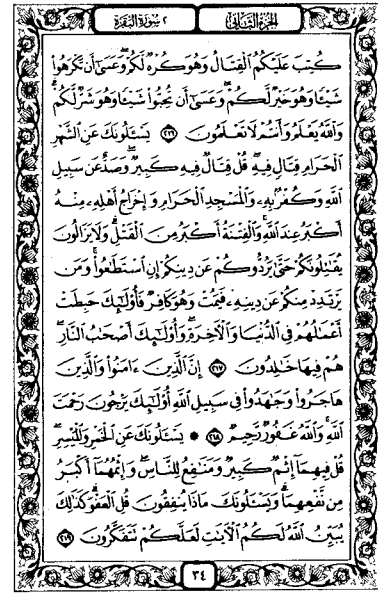 الجزء الثاني
٢ سورة البقرة
كُتِبَ عَلَيْكُمُ ٱلْقِتَالُ وَهُوَ كُرْهٌ لَّكُمْ وَعَسَىٰٓ أَن تَكْرَهُوا۟
شَيْـًٔا وَهُوَ خَيْرٌ لَّكُمْ وَعَسَىٰٓ أَن تُحِبُّوا۟ شَيْـًٔا وَهُوَ شَرٌّ لَّكُمْ
وَٱللَّهُ يَعْلَمُ وَأَنتُمْ لَا تَعْلَمُونَ ٢١٦ يَسْـَٔلُونَكَ عَنِ ٱلشَّهْرِ
ٱلْحَرَامِ قِتَالٍ فِيهِ قُلْ قِتَالٌ فِيهِ كَبِيرٌ وَصَدٌّ عَن سَبِيلِ
ٱللَّهِ وَكُفْرٌۢ بِهِۦ وَٱلْمَسْجِدِ ٱلْحَرَامِ وَإِخْرَاجُ أَهْلِهِۦ مِنْهُ
أَكْبَرُ عِندَ ٱللَّهِ وَٱلْفِتْنَةُ أَكْبَرُ مِنَ ٱلْقَتْلِ وَلَا يَزَالُونَ
يُقَـٰتِلُونَكُمْ حَتَّىٰ يَرُدُّوكُمْ عَن دِينِكُمْ إِنِ ٱسْتَطَـٰعُوا۟ وَمَن
يَرْتَدِدْ مِنكُمْ عَن دِينِهِۦ فَيَمُتْ وَهُوَ كَافِرٌ فَأُو۟لَـٰٓئِكَ حَبِطَتْ
أَعْمَـٰلُهُمْ فِى ٱلدُّنْيَا وَٱلْـَٔاخِرَةِ وَأُو۟لَـٰٓئِكَ أَصْحَـٰبُ ٱلنَّارِ
هُمْ فِيهَا خَـٰلِدُونَ ٢١٧ إِنَّ ٱلَّذِينَ ءَامَنُوا۟ وَٱلَّذِينَ
هَاجَرُوا۟ وَجَـٰهَدُوا۟ فِى سَبِيلِ ٱللَّهِ أُو۟لَـٰٓئِكَ يَرْجُونَ رَحْمَتَ
ٱللَّهِ وَٱللَّهُ غَفُورٌ رَّحِيمٌ ٢١٨ ۞ يَسْـَٔلُونَكَ عَنِ ٱلْخَمْرِ وَٱلْمَيْسِرِ
قُلْ فِيهِمَآ إِثْمٌ كَبِيرٌ وَمَنَـٰفِعُ لِلنَّاسِ وَإِثْمُهُمَآ أَكْبَرُ
مِن نَّفْعِهِمَا وَيَسْـَٔلُونَكَ مَاذَا يُنفِقُونَ قُلِ ٱلْعَفْوَ كَذَٰلِكَ
يُبَيِّنُ ٱللَّهُ لَكُمُ ٱلْـَٔايَـٰتِ لَعَلَّكُمْ تَتَفَكَّرُونَ ٢١٩
٣٤